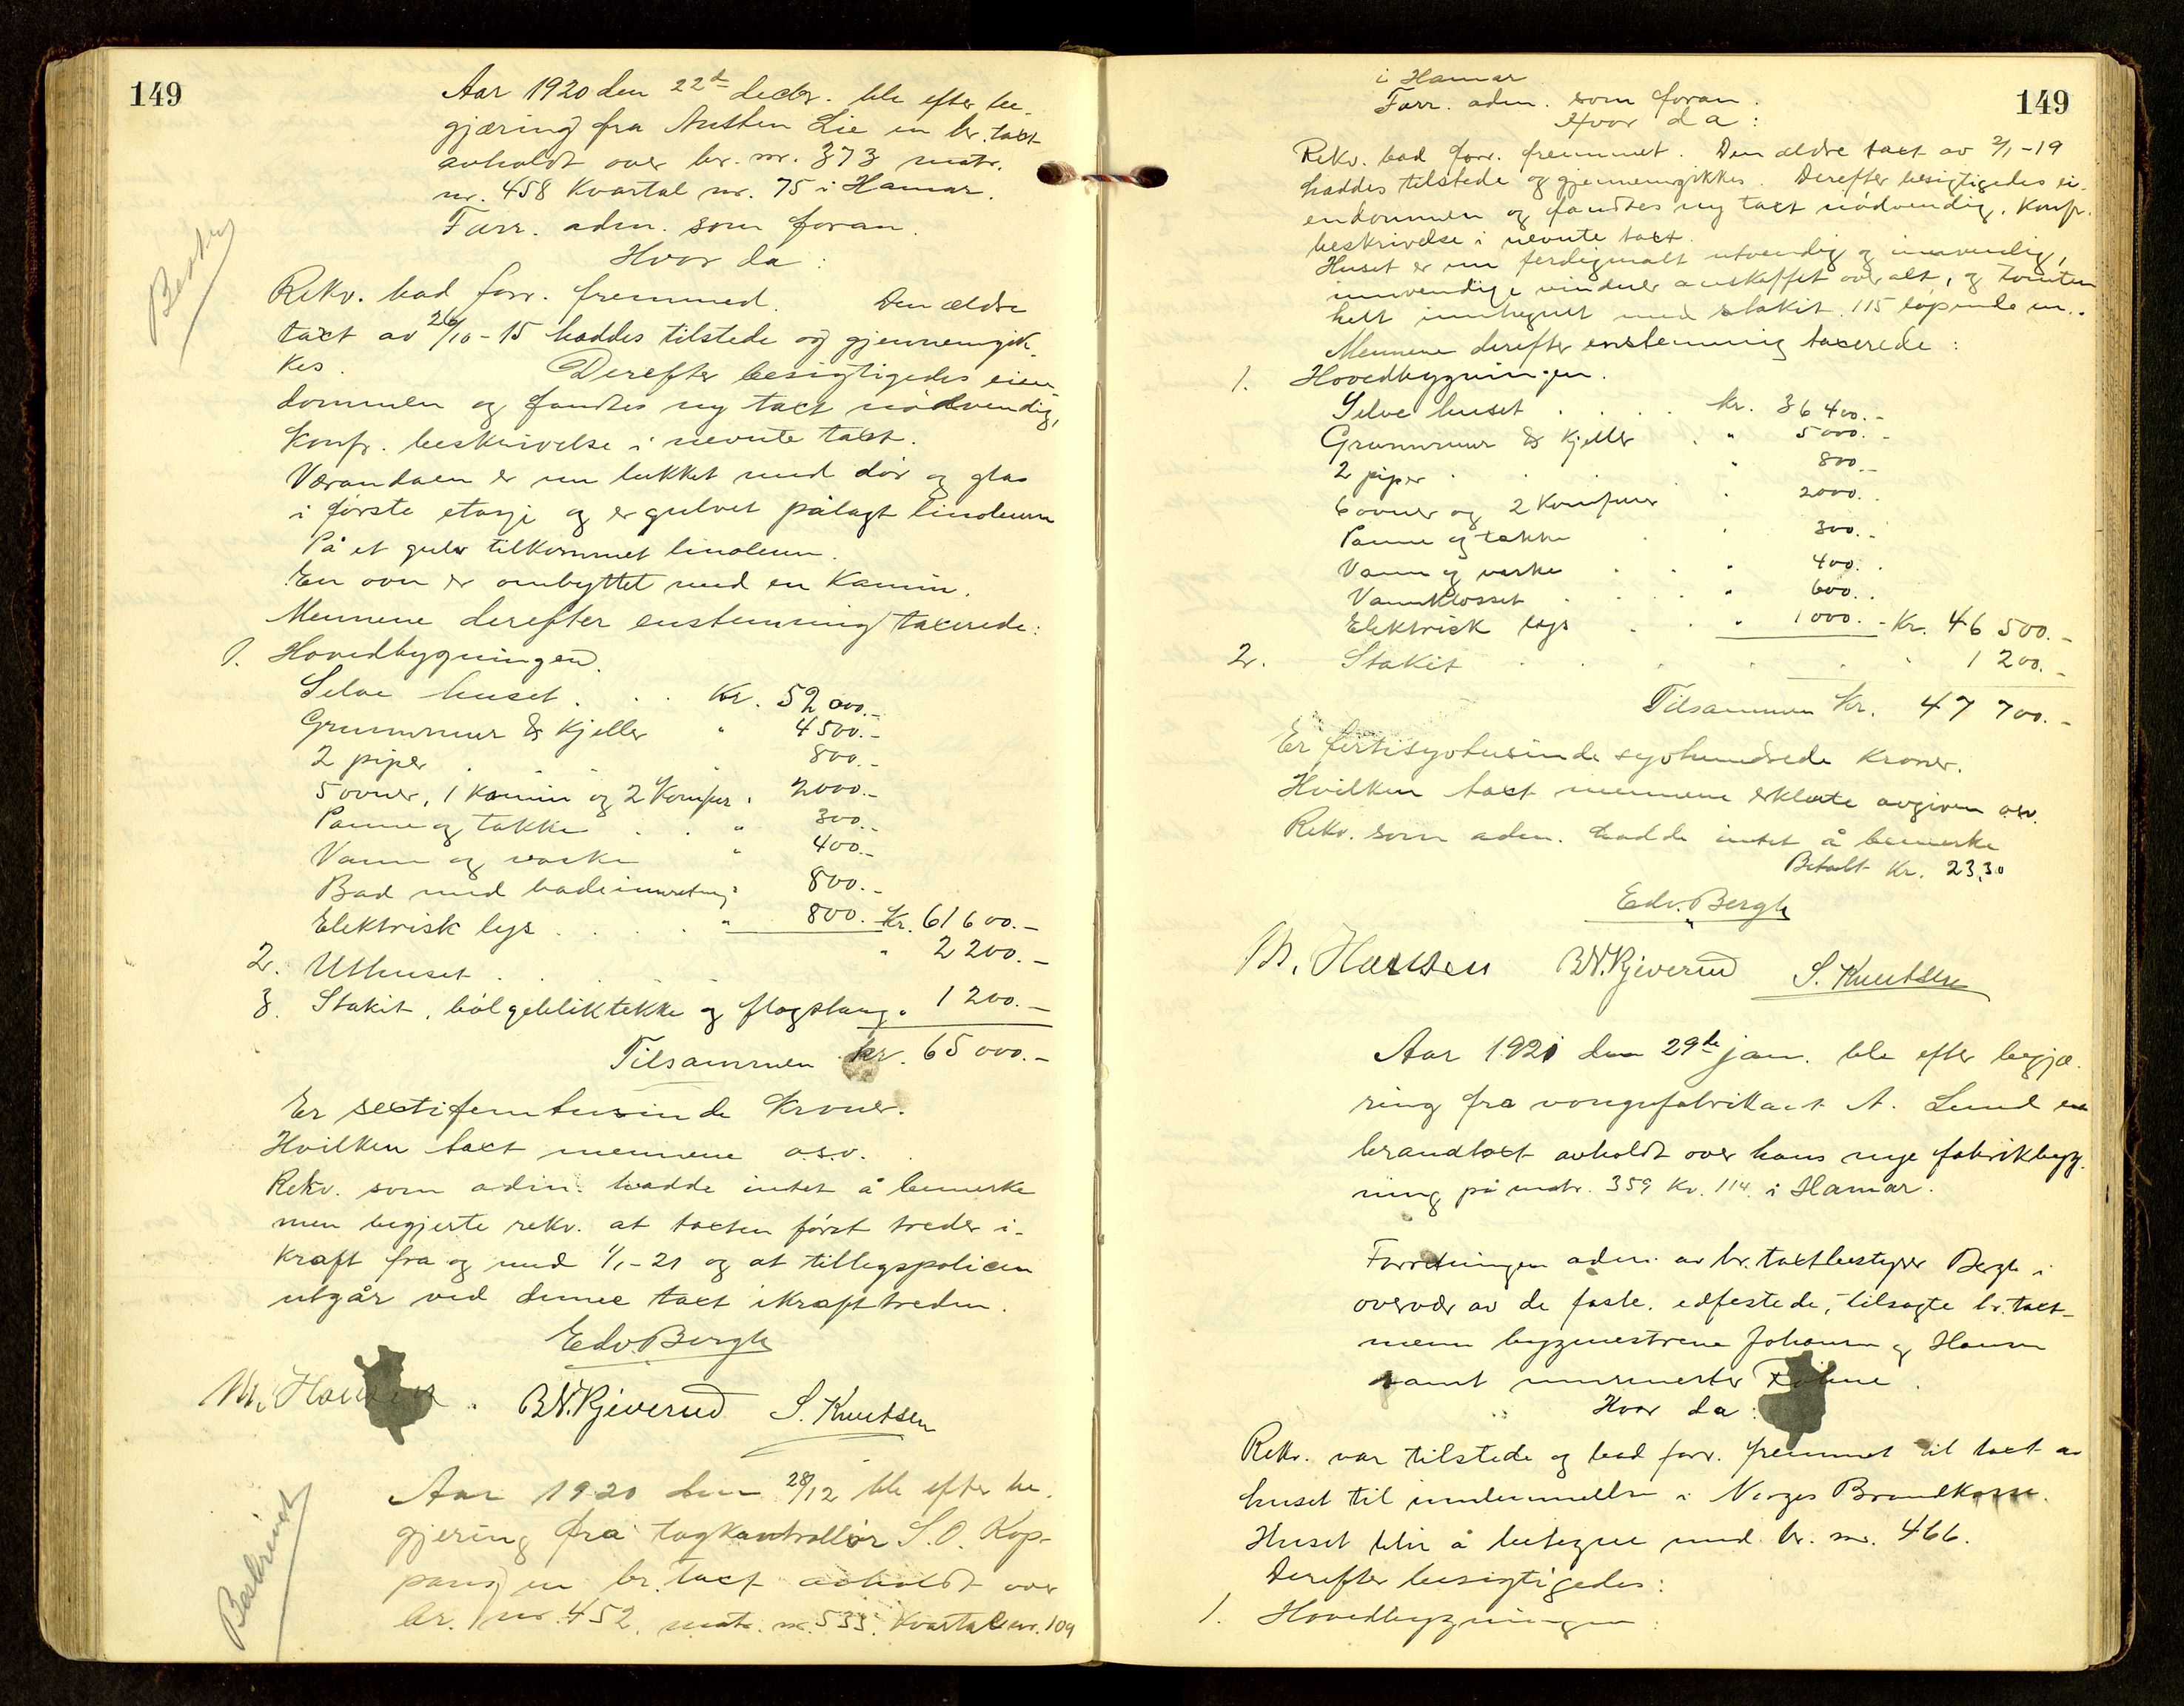 149
Aar 1920 den 22d decbr. ble efter be-
gjæring fra Austen Lie en br. taxt
avholdt over br. nr. 373 matr.
nr. 458 Kvartal nr. 75 i Hamar.
Forr. adm. som foran.
Hvor da:
Rekv. bad forr. fremmed. Den ældre
taxt av 26/10-15 haddes tilstede og gjennemgik-
kes. Derefter besigtigedes eien-
dommen og fandtes ny taxt nødvendig,
konfr. beskrivelse i nevnte taxt.
Verandaen er nu lukket med dør og glas
i første etasje og er gulvet pålagt linoleum
På et gulv tilkommet linoleum.
En ovn er ombyttet med en Kamin.
Mennene derefter enstemmig taxerede:
1. Hovedbygningen.
Selve huset . . . Kr. 52 000.-
Grunnmur & Kjeller " 4500.-
2 piper . . . " 800.-
5 ovner, 1 kamin og 2 Komfur " 2000.-
Panne og takke . . " 300.-
Vann og vaske " 400.-
Bad med badeinnretning " 800.-
Elektrisk lys . . . . " 800. - Kr. 61600.-
2. Uthuset . . . " 2200.-
3. Stakit, bølgebliktekke og flagstang " 1200.-
Tilsammen kr. 65000.-
Er sextifemtusinde Kroner.
Hvilken taxt mennene o.s.v.
Rekv. som adm. hadde intet å bemerke
men begjerte rekv. at taxten først treder i-
kraft fra og med 1/1-21 og at tillegspolicen
utgår ved denne taxt ikrafttreden.
Edv. Bergh
M. Hansen. B.N. Kjeverud S. Knutsen
Aar 1920 den 28/12 ble efter be-
gjering fra togkontrollør S.O. Kop-
pang en br. taxt avholdt over
br. nr. 452. matr. nr. 533. Kvartal nr. 109
149
i Hamar
Forr. adm. som foran.
Hvor da:
Rekv. bad forr. fremmet. Den ældre taxt av 2/1-19
haddes tilstede og gjennemgikkes. Derefter besigtigedes ei-
endommen og fandtes ny taxt nødvendig. Konfr.
beskrivelse i nevnte taxt.
Huset er nu ferdigmalt utvendig og innvendig,
innvendige vinduer anskaffet overalt, og tomten
helt innhegnet med stakit. 115 løpende m..
Mennene derefter enstemmig taxerede:
1. Hovedbygningen.
Selve huset . . . . kr. 36 400.-
Grunnmur & Kjeller . " 5000.-
2 piper . . . " 800.-
6 ovner og 2 Komfurer " 2000.-
Panne og takke . " 300.-
Vann og vaske . . " 400.-
Vannklosset . . . " 600.-
Elektrisk lys . . " 1000. - Kr. 46 500.-
2. Stakit . . . . . . 1 200.-
Tilsammen Kr. 47 700.-
Er førtisyvtusinde syvhundrede Kroner.
Hvilken taxt mennene erklærte avgiven osv.
Rekv. som adm. hadde intet å bemerke
Betalt Kr. 23,30
Edv. Bergh
M. Hansen B.N. Kjeverud S. Knutsen
Aar 1921 den 29de jan. ble efter begjæ-
ring fra vongnfabrikant A. Lund en
brandtaxt avholdt over hans nye fabrikbyg-
ning på matr. 359 Kv. 114 i Hamar.
Forretningen adm. av br. taxtbestyrer Bergh i
overvær av de faste, edfestede, tilsagte br. taxt-
menn bygmestrene Johansen og Hansen
samt murmester
Hvor da:
Rekv. var tilstede og bad forr. fremmet til taxt av
huset til innlemmelse i Norges Brandkasse.
Huset blir å betegne med br. nr. 466.
Derefter besigtigedes:
1. Hovedbygningen: